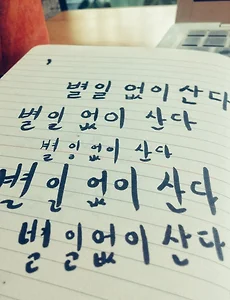 별일 없이 산다
별일 없이 산다
별일 없이 산다
별일 없이 산다
별일없이 산다